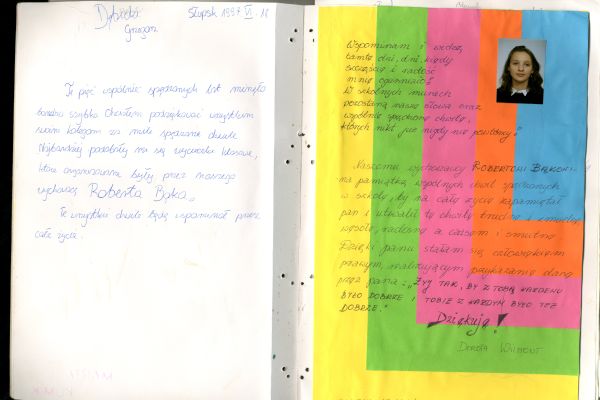 Dębski
Grzegorz
Słupsk 1997 VI 16
Te pięć wspólnie spędzonych lat minęło
bardzo szybko Chciałbym podziękować wszystkim
moim kolegom za mile spędzone chwile
Najbardziej podobały mi się wycieczki klasowe,
które organizowane były przez naszego
wychowawcę Roberta Bąka.
Te wszystkie chwile będę wspominał przez
całe życie.
Wspominam i widzę
tamte dni, dni, kiedy
szczęście i radość
mnie ogarniało!
W szkolnych murach
pozostaną nasze słowa oraz
wspólnie spędzone chwile,
których nikt już nigdy nie powtórzy!
Naszemu wychowawcy ROBERTOWI BĄKOWI
na pamiątkę wspólnych chwil spędzonych
w szkole, by na całe życie zapamiętał
pan i utrwalił te chwile trudne i
wesołe, radosne a czasem i smutne
Dzięki panu stałam się człowiekiem
prawym, realizującym przykazanie dane
przez pana: „ŻYJ TAK, BY Z TOBĄ KAŻDEMU
BYŁO DOBRZE I TOBIE Z KAŻDYM BYŁO TEŻ
DOBRZE."
Dziękuję!
DOROTA